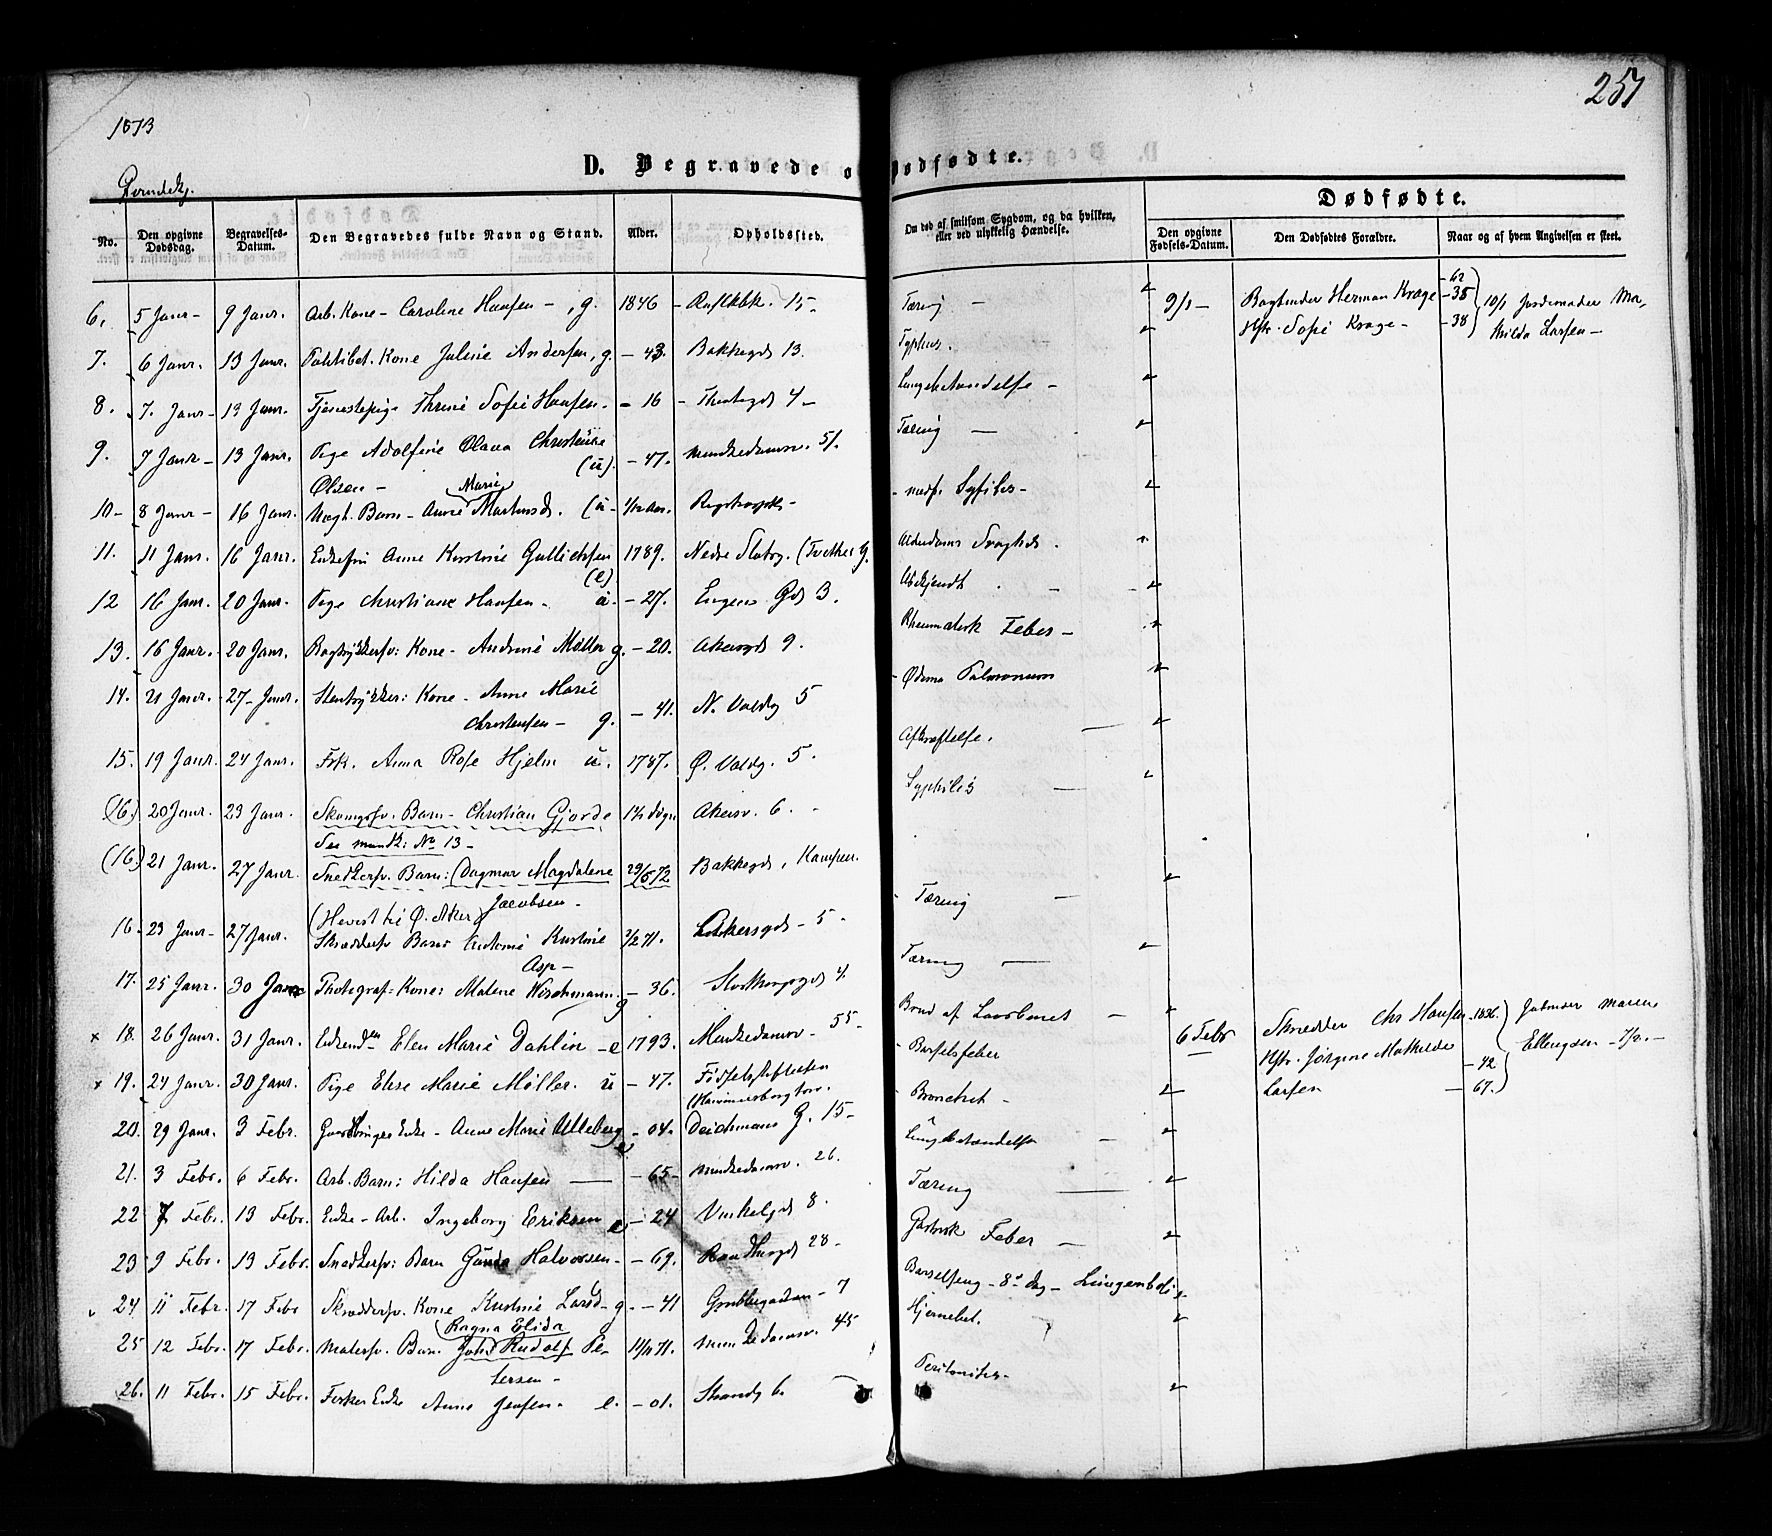 1873
251
D. Begravede o
Dødfødte.
Qvindekj.
Dødfødte.
No.
Den opgivne Dødsdag.
Begravelses-Datum.
Den Begravedes fulde Navn og Stand.
Alder.
Opholdssted.
Om død af smitsom Sygdom, og da hvilken, eller ved ulykkelig Hændelse.
Den opgivne Fødsels-Datum.
Den Dødfødtes Forældre.
Naar og af hvem Angivelsen er skeet.
6, 5 Janr - 9 Janr. Arb. Kone - Caroline Hansen - , g. 1846 - 15 - Tæring -
9/1 - Bogbinder Herman Krage - 35
Hstr. Sofie Krage - - 38
10/1 Jordemoder Ma-
thilda Larsen -
7. 6 Janr. 13 Janr. Kone Juline Andersen, g. - 43. Bakkegd 13. Typhus.
8. 7. Janr - 13 Janr. Tjenestepige Thrine Sofie Hansen. - 16 - Theatergd 4 - Lungebetændelse -
9. 7 Janr - 13 Janr. Pige Adolfine Olava Christine (ü). - 47. Munkedamsv. 51. Tæring -
Olsen -
Marie
10 - 8 Janr - 16 Janr. Barn - Anne Martinsd. (ü - medf. Syfiles -
11. 11 Janr. 16 Janr. Enkefru Anne Kirstine Gullichsen 1789. Nedre Slotsg. Alderdoms Svaghed.
(e)
12 16 Janr. 20 Janr. Pige Christiane Hansen - ü. - 27. Eugens Gd 3. Ubekjendt
13. 16 Janr. 20 Janr. Bogtrykkersv: Kone - Andrine Møller g. - 20. Akersgd 9. Rheumatisk Feber -
14. 21 Janr. 27 - Janr. Stentrykker: Kone - Anne Marie
Christensen - g. - 41. N. Voldg 5 - Ødema Pulmonum
15. 19 Janr. 24 Janr. Frk. Anna Rose Hjelm ü. 1787. Ø. Voldg. 5. Afkræftelse.
(16.) 20 Janr. 23 Janr. Barn - Christian Gjorde Akersv. 6. - Syphilis
See mandk: No 13 -
(16.) 21 Janr. 27 Janr. Snedkersv. Barn: (Dagmar Magdalene 29/5 72 Bakkegd, Kampen.
Jacobsen -
(Henvist til Ø. Aker)
16. 23 Janr - 27 Janr. Skræddersv Barn Antonie Kirstine 3/2 71. Akersgd - 5 - Tæring
Asp -
17. 25 Janr. 30 Janr Photograf: Kone: Malene Wischmann. g - 36. 4. Tæring
x 18. 26 Janr. 31 Janr. Elen Marie Dahlin - e 1793. Munkedamsv - 55 - Brud af Laarbenet -
6 Febr Skrædder Chr Hansen - 1836.
Hstr. Jørgine Mathilde - 42
Larsen - 67.
Jordmoder Maren
Ellingsen - 7/2. -
x 19. 24 Janr. 30 Janr. Pige Elise Marie Møller. ü - 47. Fødselsstiftelsen Barselsfeber
(Hammersborg torv.
20. 29 Janr. 3 Febr. Enke - Anne Marie Ulleberg e - 04. Deichmans G. 15 - Bronchit -
21. 3 Febr. 6 Febr. Arb. Barn: Hilda Hansen - 65 - Munkedamsv. 26. Lungebetændelse
22 7 Febr. 13 Febr. Enke - Arb. Ingeborg Eriksen e - 24 Vinkelgd 8. Tæring
23 9 Febr. 13 Febr. Snedkersv: Barn Gunda Halvorsen - - 69. 28 - Gastrisk Feber -
24 11 Febr. 17 Febr Skræddersv. Kone Kirstine Larsd - g. - 41 Grubbegaden - 7 Barselseng - 8de Dag - Lungenbet:
Ragna Elida
25 12 Febr. 17 Febr. Malersv. Barn. John Rudolf Pe- 11/11 71. Munkedamsv. 45 Hjernebet.
tersen -
26. 11 Febr. 15 Febr. Fisker Enke Anne Jensen. e. - 01. Strandg 6. Peritonites -